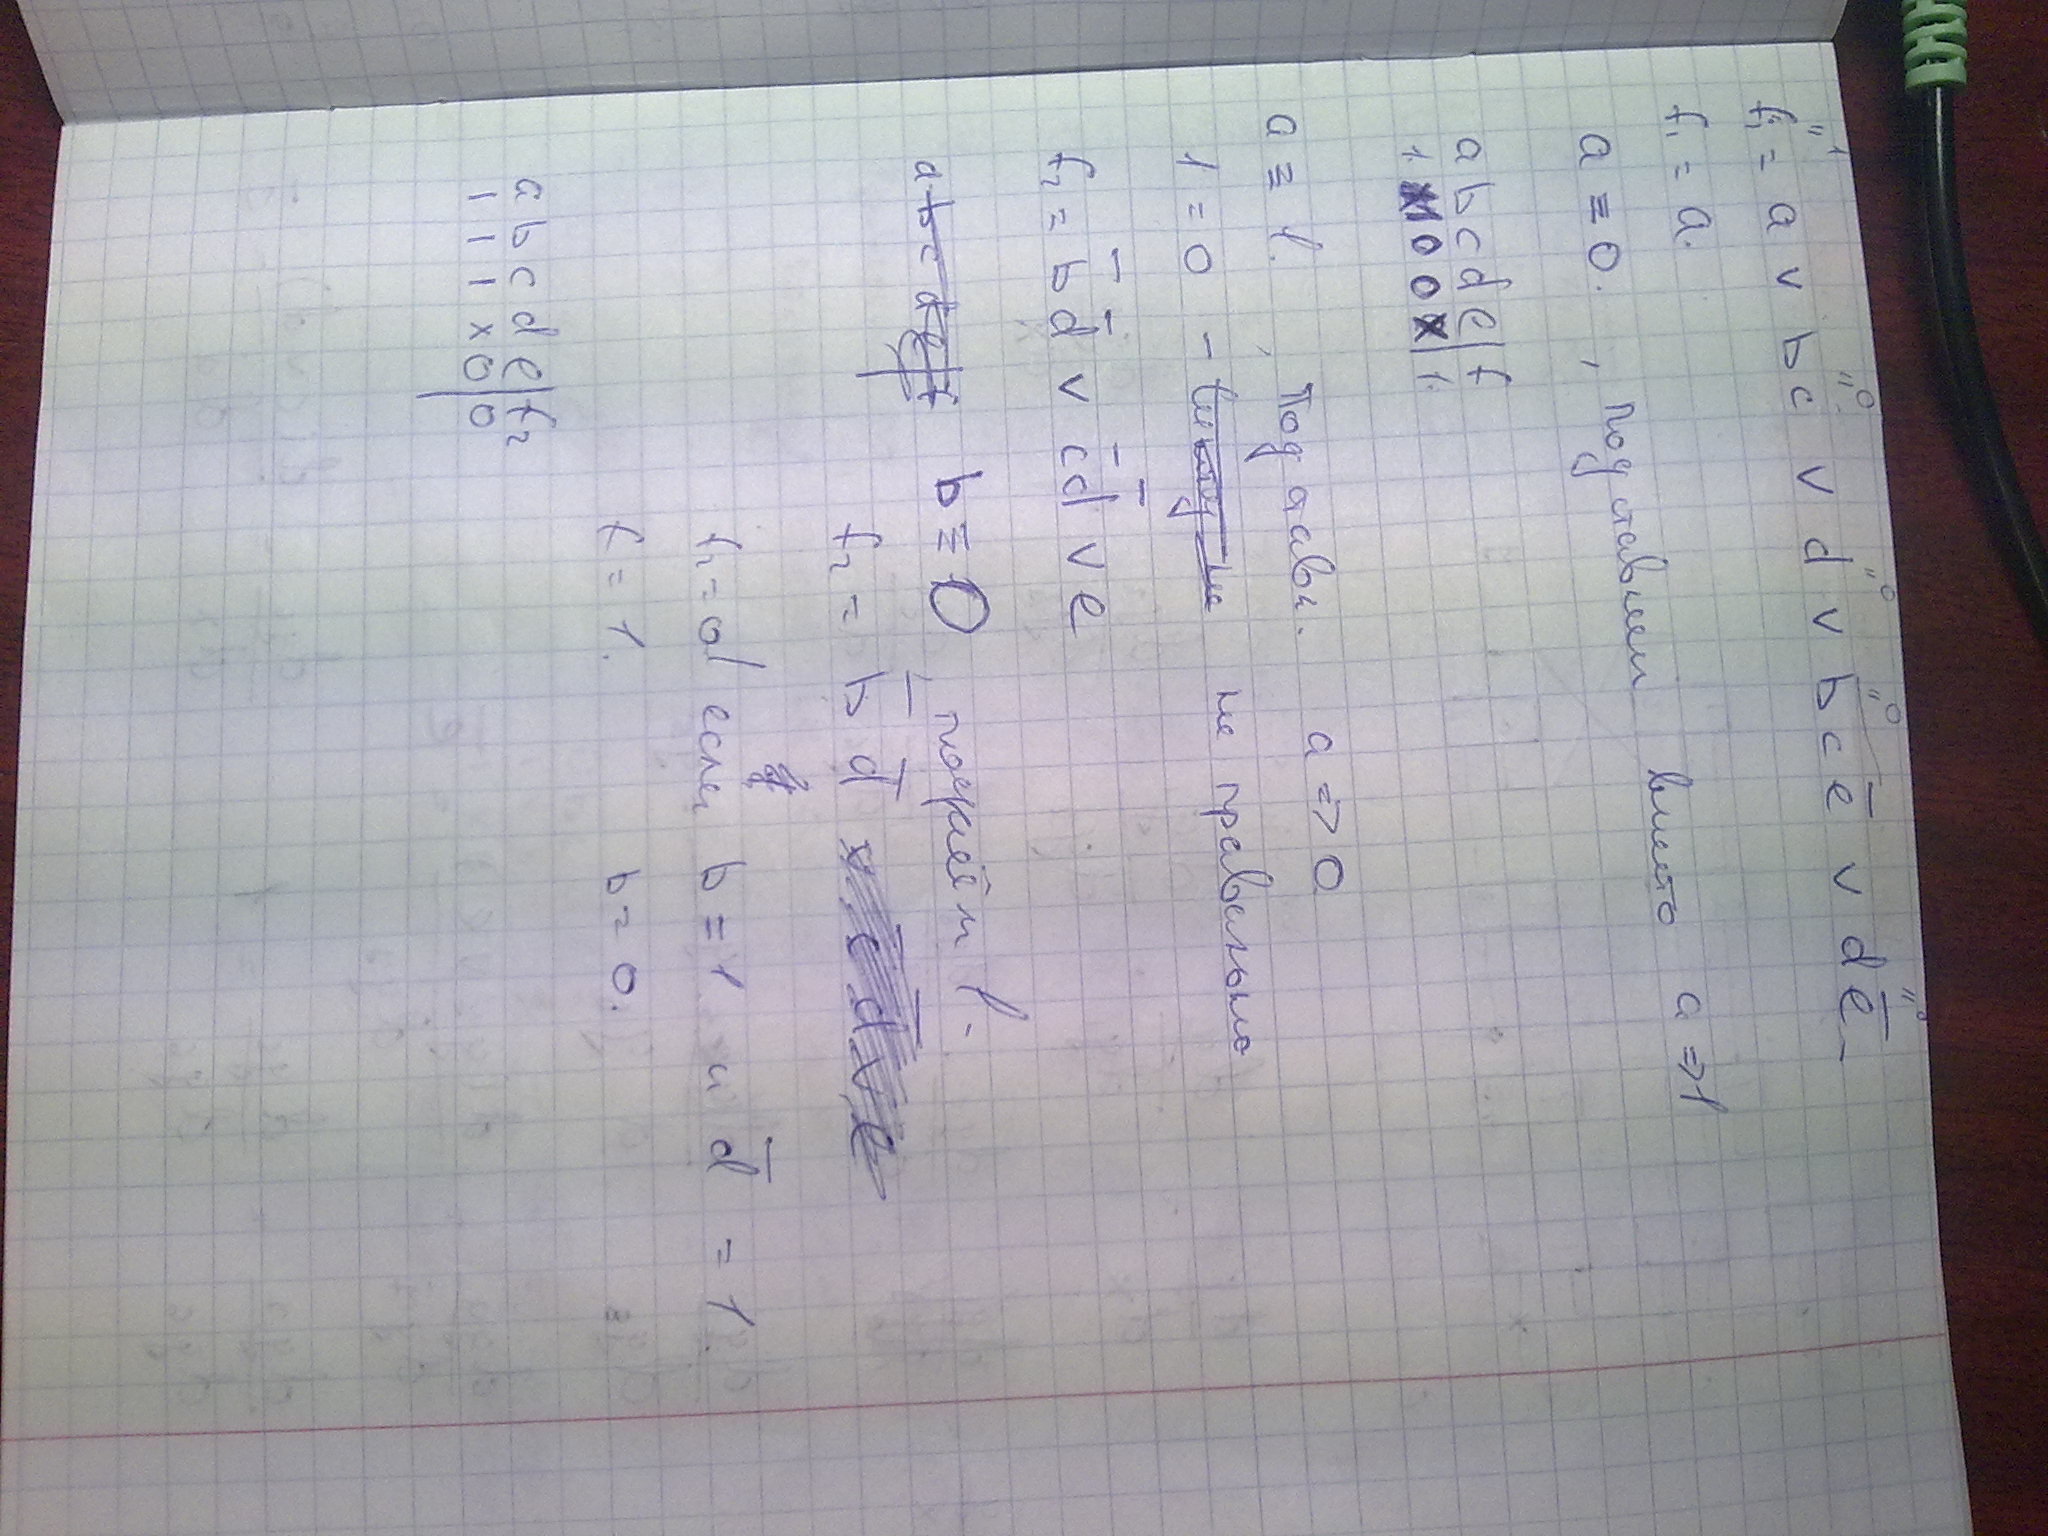 "1 "0 "0 "0 "0
f₁ = a ∨ bc ∨ d ∨ bcē ∨ dē
f₁ = a.
a ≡ 0. , подставляем вместо a ⇒ 1
a b c d e | f
1 x 0 0 x | 1.
a ≡ 1. , Подставл. a ⇒ 0
1 = 0 – не правильно
f₂ = b̄ d̄ ∨ c̄ d̄ ∨ e
b ≡ 0 , потерям 1.
f₂ = b̄ d̄
f₂ = 0/ если b = 1 и d̄ = 1
f = 1. b = 0.
a b c d e | f₂
1 1 1 x 0 | 0